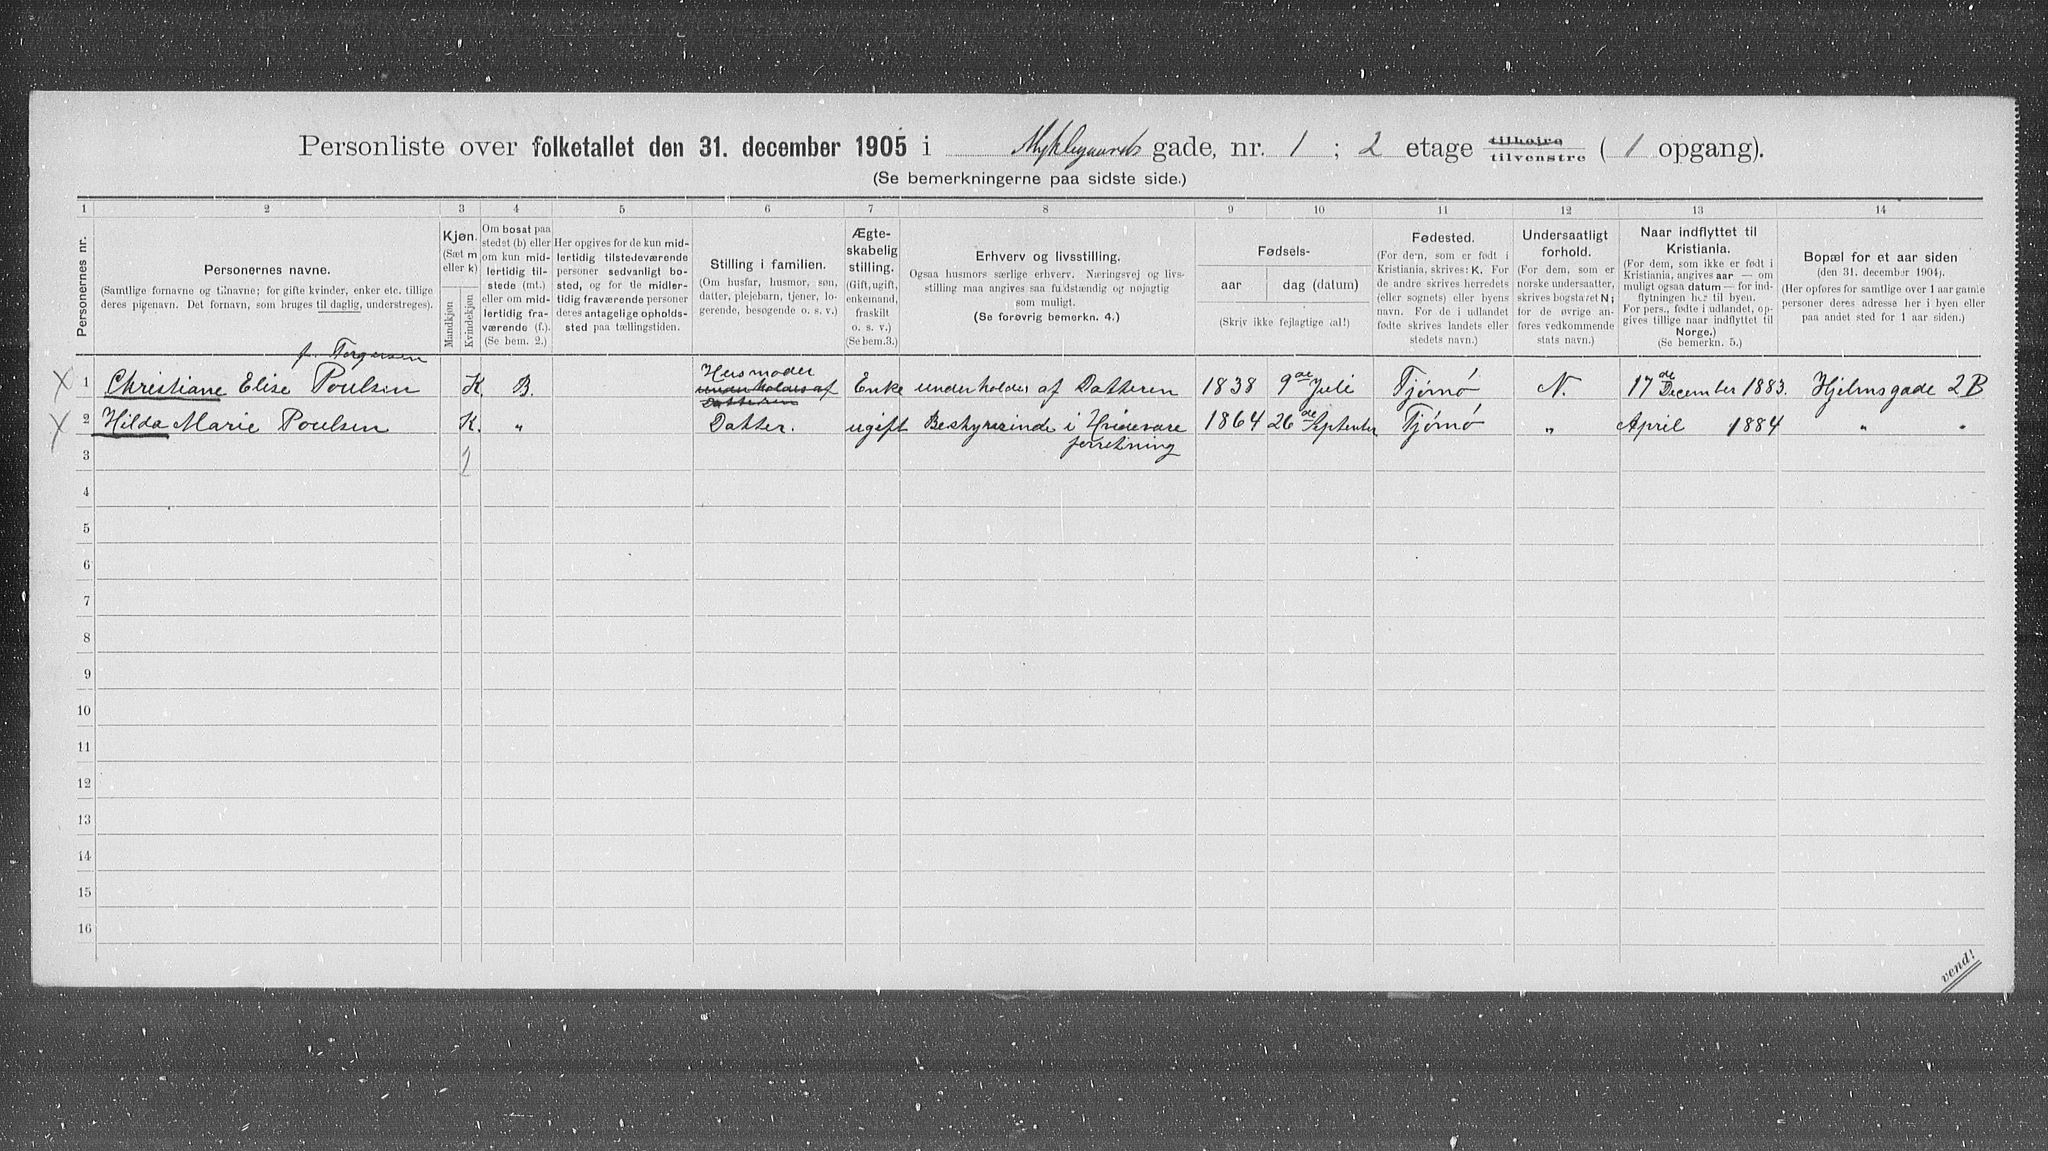 Personliste over folketallet den 31. december 1905 i Myklegaards gade, nr. 1 ; 2 etage tilhøire tilvenstre ( 1 opgang).
(Se bemerkningerne paa sidste side.)
1 2 3 4 5 6 7 8 9 10 11 12 13 14
Personernes nr.
Personernes navne.
(Samtlige fornavne og tilnavne; for gifte kvinder, enker etc. tillige
deres pigenavn. Det fornavn, som bruges til daglig, understreges).
Kjøn.
(Sæt m
eller k)
Mandkjøn
Kvindekjøn
Om bosat paa
stedet (b) eller
om kun mid-
lertidig til-
stede (mt.)
eller om mid-
lertidig fra-
værende (f.).
(Se bem. 2.)
Her opgives for de kun mid-
lertidig tilstedeværende
personer sedvanligt bo-
sted, og for de midler-
tidig fraværende personer
deres antagelige opholds-
sted paa tællingstiden.
Stilling i familien.
(Om husfar, husmor, søn,
datter, plejebarn, tjener, lo-
gerende, besøgende o. s. v.)
Ægte-
skabelig
stilling.
(Gift, ugift,
enkemand,
fraskilt
o. s. v.)
(Se bem.3.)
Erhverv og livsstilling.
Ogsaa husmors særlige erhverv. Næringsvej og livs-
stilling maa angives saa fuldstændig og nøjagtig
som muligt.
(Se forøvrig bemerkn. 4.)
Fødsels-
aar
dag (datum)
(Skriv ikke fejlagtige tal!)
Fødested.
(For dem, som er født i
Kristiania, skrives: K. For
de andre skrives herredets
(eller sognets) eller byens
navn. For de i udlandet
fødte skrives landets eller
stedets navn.)
Undersaatligt
forhold.
(For dem, som er
norske undersaatter,
skrives bogstavet N;
for de øvrige an-
føres vedkommende
stats navn.)
Naar indflyttet til
Kristiania.
(For dem, som ikke er født i
Kristiania, angives aar — om
muligt ogsaa datum — for ind-
flytningen her til byen.
For pers., fødte i udlandet, op-
gives tillige naar indflyttet til
Norge.)
(Se bemerkn. 5.)
Bopæl for et aar siden
(den 31. december 1904).
(Her opføres for samtlige over 1 aar gamle
personer deres adresse her i byen eller
paa andet sted for 1 aar siden.)
f. Torgersen
X 1 Christiane Elise Poulsen K B. Husmoder underholdes af Datteren Enke underholdes af Datteren 1838 9de Juli Tjømø N. 17de December 1883. Hjelmsgade 2 B
X 2 Hilda Marie Poulsen K. " Datter. ugift Bestyrerinde i Hvidevare 1864 26de September Tjømø " April 1884 " "
forretning
3 2
4
5
6
7
8
9
10
11
12
13
14
15
16
vend!